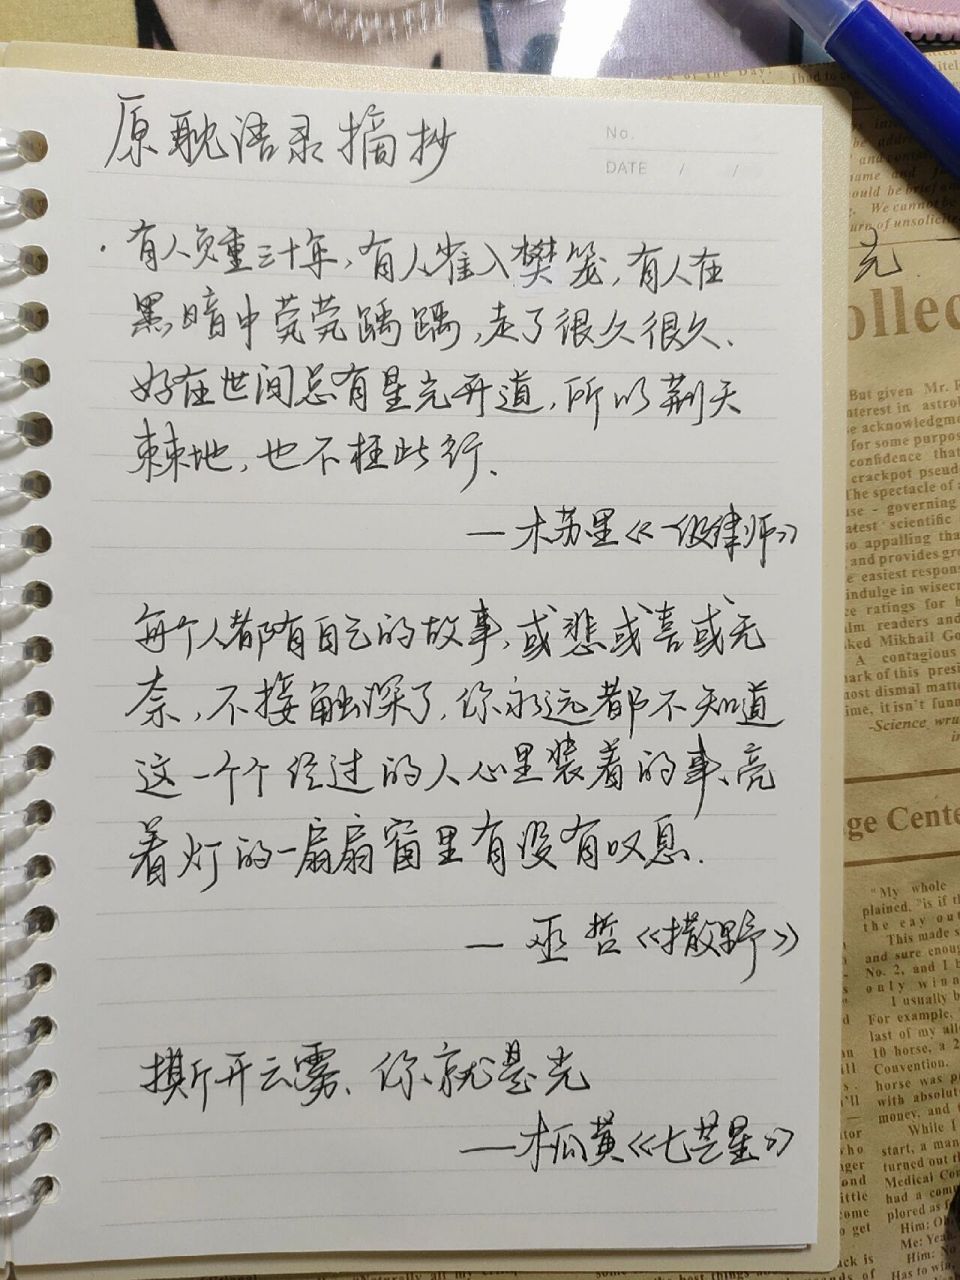 原耽语录摘抄
No.
DATE / /
·有人负重三十年,有人雀入樊笼,有人在
黑暗中茕茕踽踽,走了很久很久、
好在世间总有星光开道,所以荆天
棘地,也不枉此行、
—木苏里《一级律师》
每个人都有自己的故事,或悲或喜或无
奈,不接触深了,你永远都不知道
这一个个经过的人心里装着的事、亮
着灯的一扇扇窗里有没有叹息.
—巫哲《撒野》
撕开云雾、你就是光
—木瓜黄《七芒星》
光
ollec
But given Mr. R
interest in astrol
acknowledgme
for some purpos
confidence that
crackpot pseud
The spectacle of a
- governing
atest scientific
appalling tha
and provides gr
easiest respons
indulge in wisecr
ratings for h
readers and
Mikhail Go
A contagious
mark of this presi
most dismal matte
it isn't funn
-Science wru
in
ge Cente
"My whole
plained, "is if th
the cay out
This made s
and sure enoug
No. 2, and I b
only winn
I usually b
For example,
last of my all
10 horse, a 2
Convention.
horse was p
with absolut
money, and
While I
start, a man
turned out th
Medical Con
had a comp
plored as f
Him: Oh
Me: Yeah
Him: No
Has to win